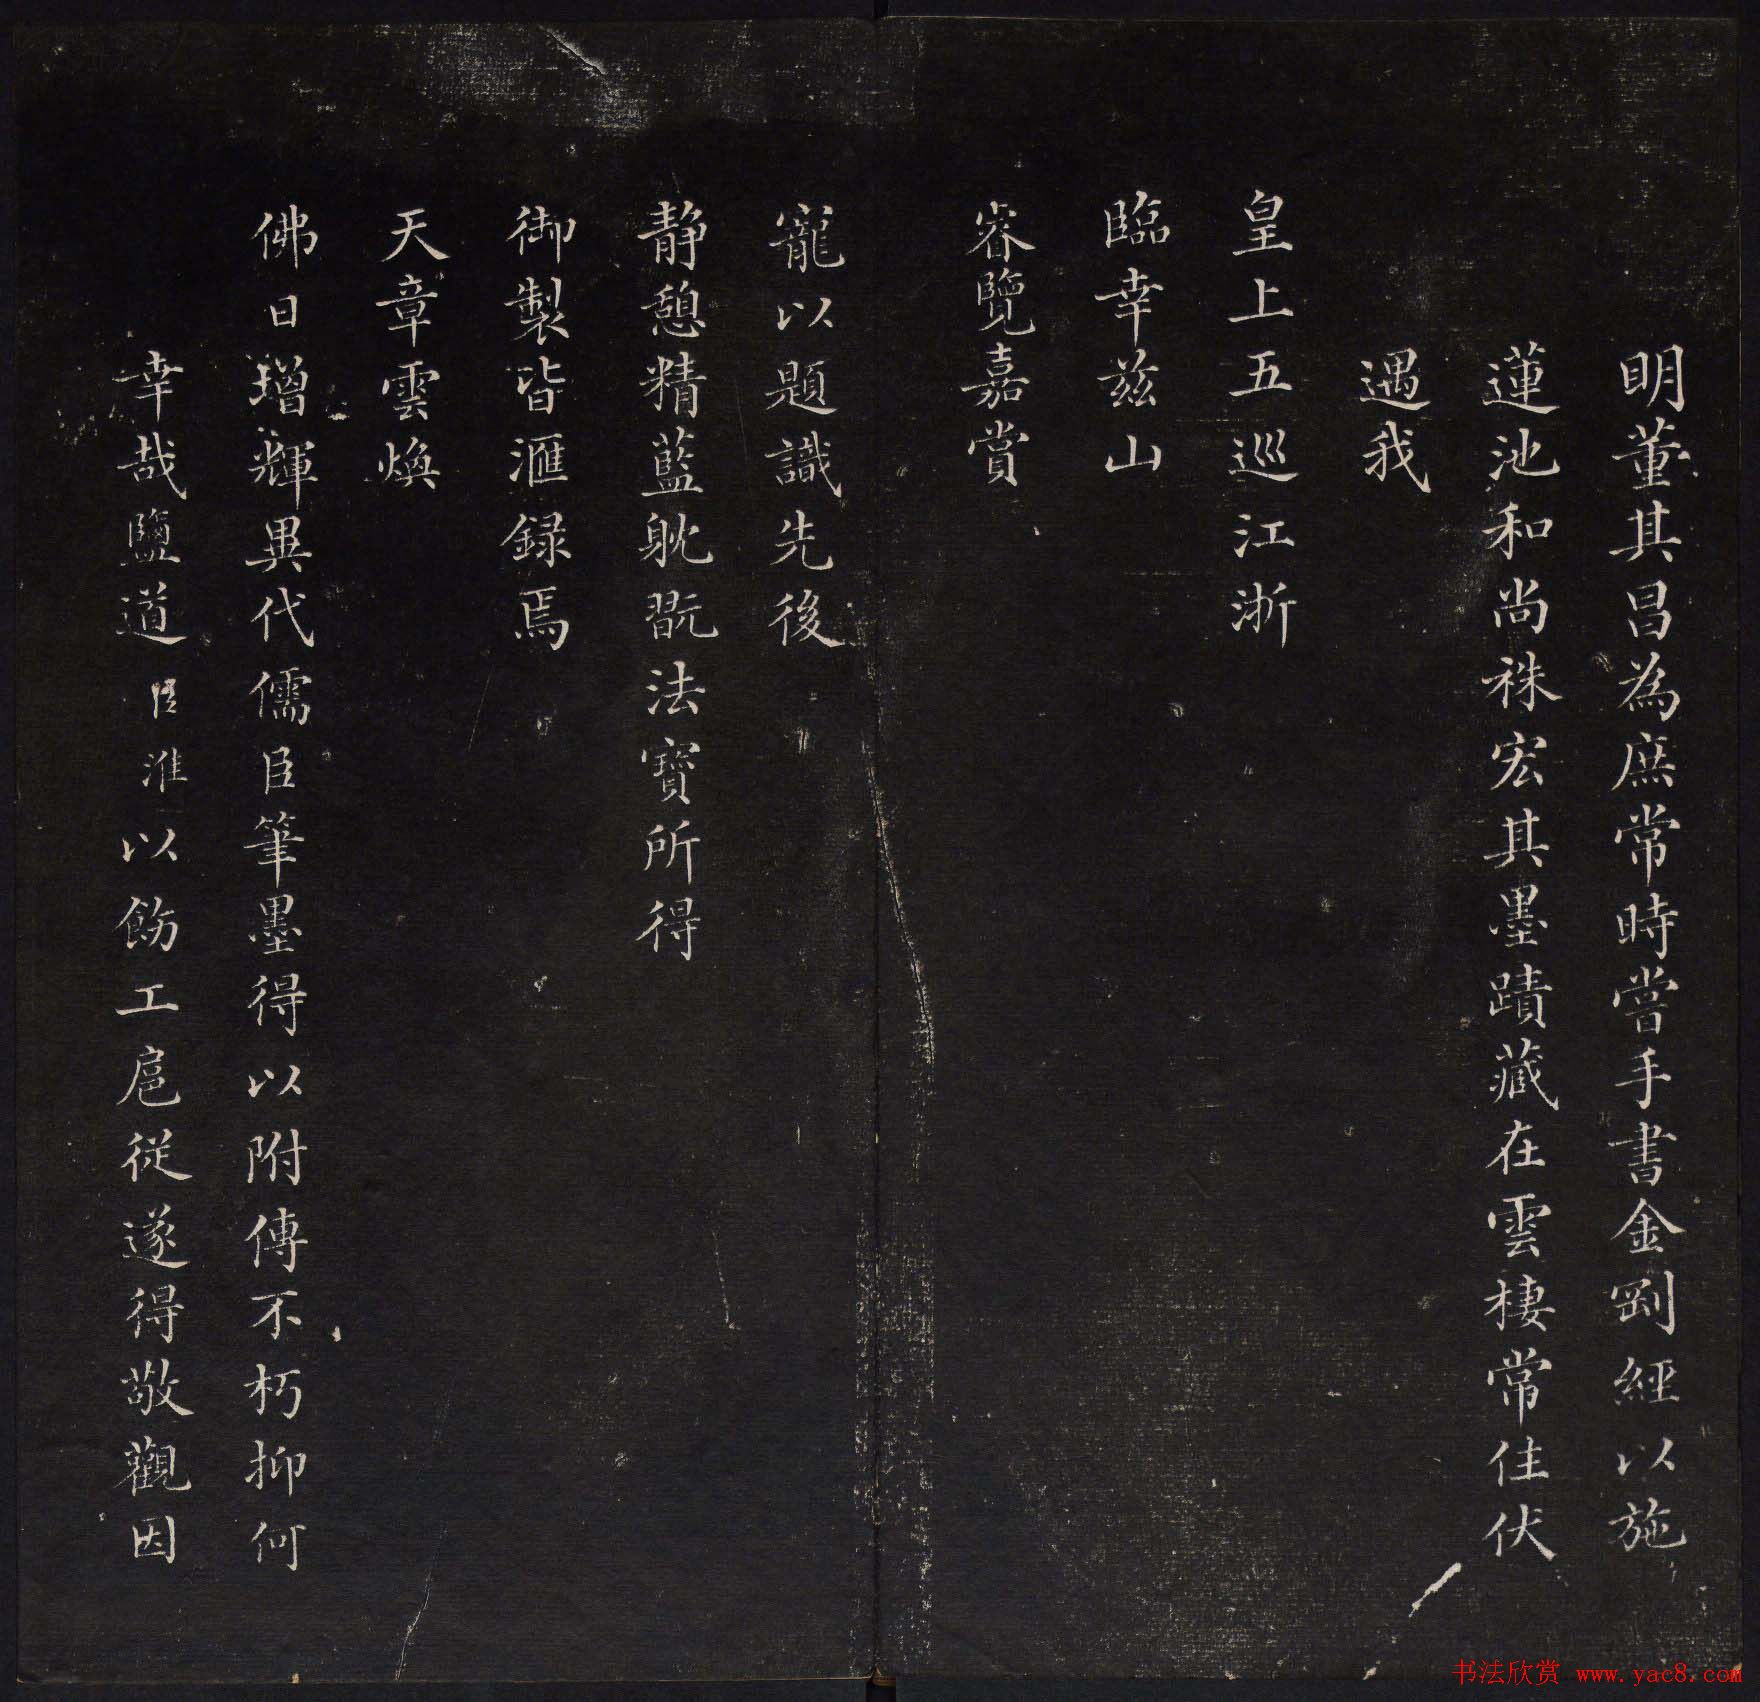 明董其昌為庶常時嘗手書金剛經以施
蓮池和尚袾宏其墨蹟藏在雲棲常住伏
遇我
皇上五巡江浙
臨幸兹山
睿覽嘉賞
寵以題識先後
静憩精藍躭翫法寶所得
御製皆滙録焉
天章雲煥
佛日增輝異代儒臣筆墨得以附傳不朽抑何
幸哉鹽道臣淮以飭工扈從遂得敬觀因
书法欣赏 www.yac8.com